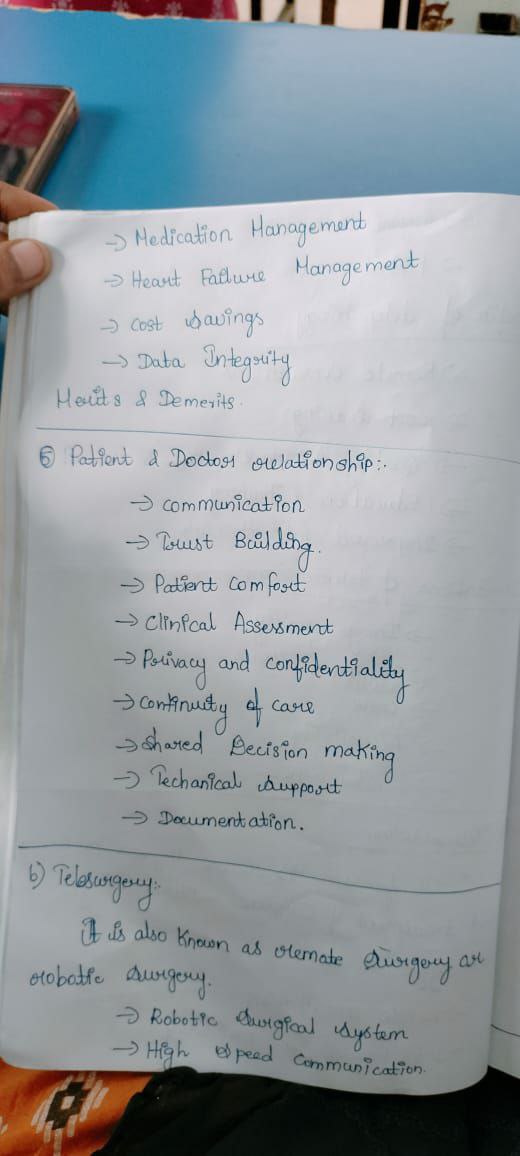 → Medication Management
→ Heart Failure Management
→ cost savings
→ Data Integrity
Merits & Demerits.
⑤ Patient & Doctor relationship:.
→ communication
→ Trust Building.
→ Patient comfort
→ Clinical Assessment
→ Privacy and confidentiality
→ continuity of care
→ shared Decision making
→ Techanical support
→ Documentation.
6) Telesurgery:.
It is also known as remate surgery ar
robotic surgery.
→ Robotic surgical system
→ High speed communication.